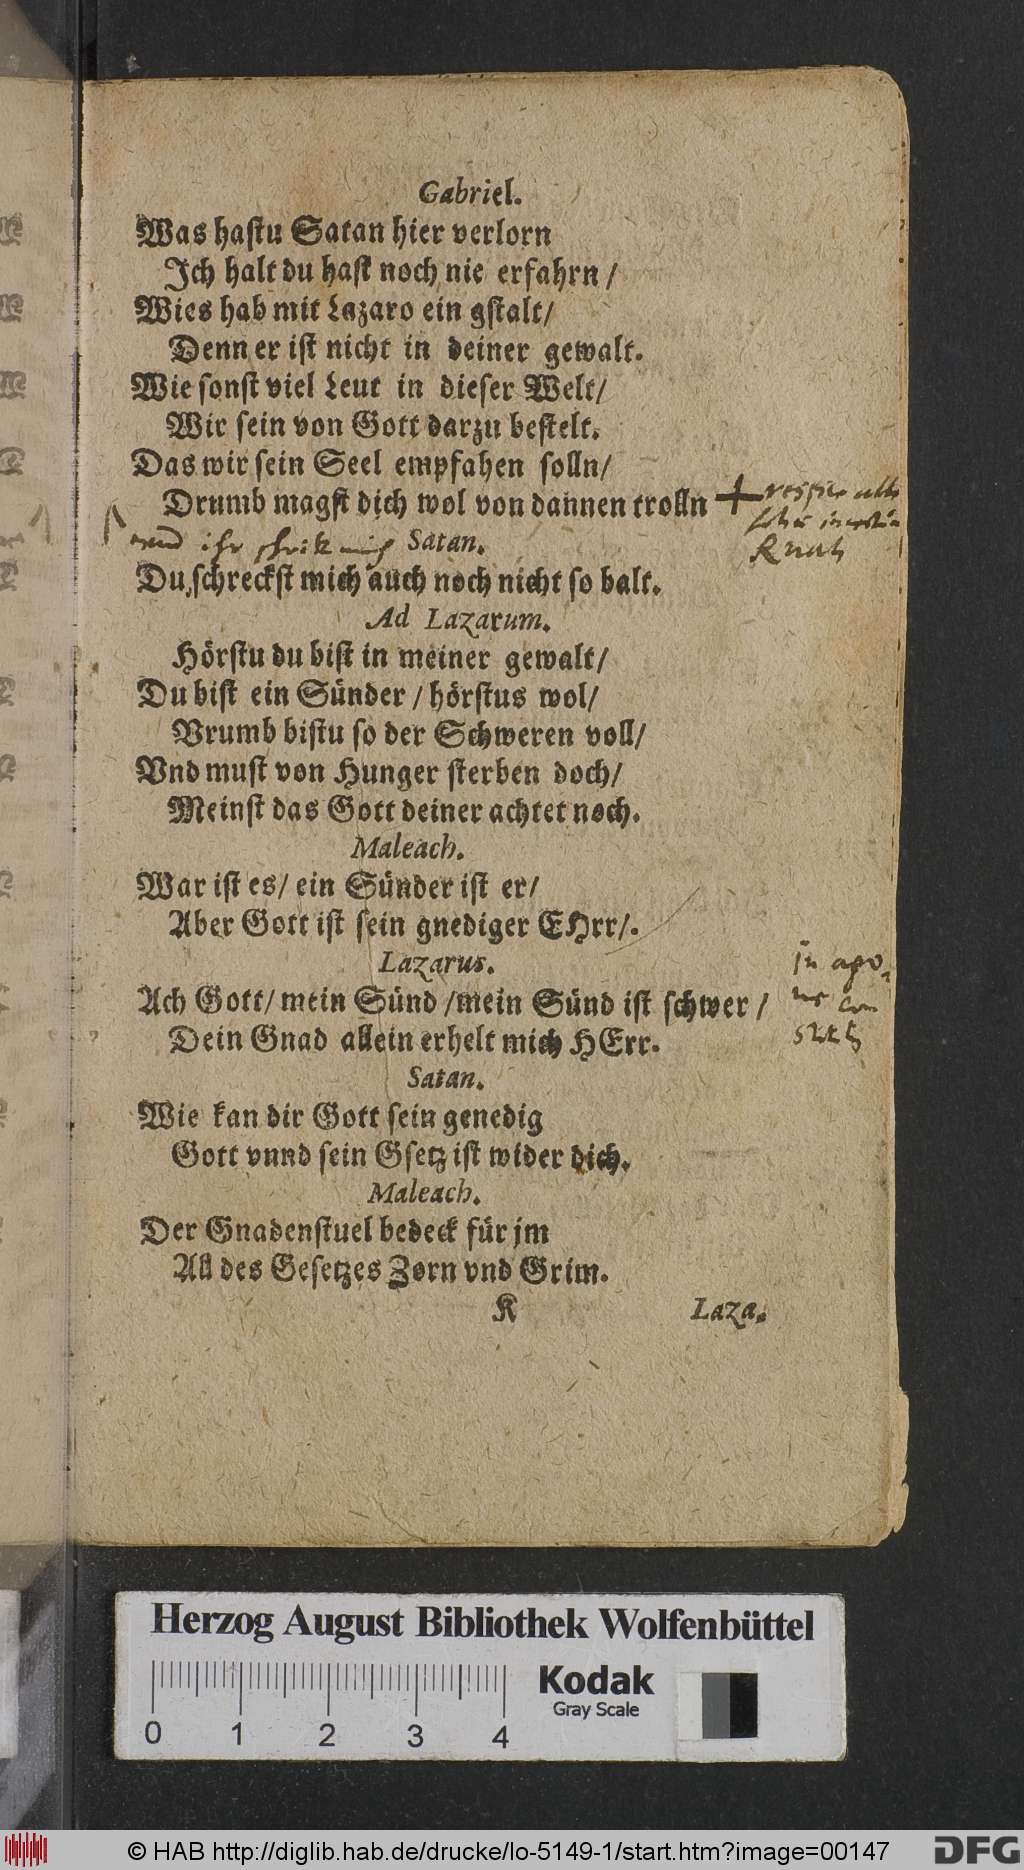 Gabriel.
Was hastu Satan hier verlorn
Ich halt du hast noch nie erfahrn /
Wies hab mit Lazaro ein gstalt/
Denn er ist nicht in deiner gewalt.
Wie sonst viel Leut in dieser Welt/
Wir sein von Gott darzu bestelt.
Das wir sein Seel empfahen solln/
Drumb magst dich wol von dannen trolln
ihr mich Satan.
Du schreckst mich auch noch nicht so balt.
Ad Lazarum.
Hörstu du bist in meiner gewalt/
Du bist ein Sünder / hörstus wol/
Vrumb bistu so der Schweren voll/
Vnd must von Hunger sterben doch/
Meinst das Gott deiner achtet noch.
Maleach.
War ist es/ ein Sünder ist er/
Aber Gott ist sein gnediger EHrr/.
Lazarus.
Ach Gott/ mein Sünd /mein Sünd ist schwer /
Dein Gnad allein erhelt mich HErr.
Satan.
Wie kan dir Gott sein genedig
Gott vnnd sein Gsetz ist wider dich.
Maleach.
Der Gnadenstuel bedeck für jm
All des Gesetzes Zorn vnd Grim.
K Laza.
Herzog August Bibliothek Wolfenbüttel
Kodak
Gray Scale
0 1 2 3 4
© HAB http://diglib.hab.de/drucke/lo-5149-1/start.htm?image=00147
DFG